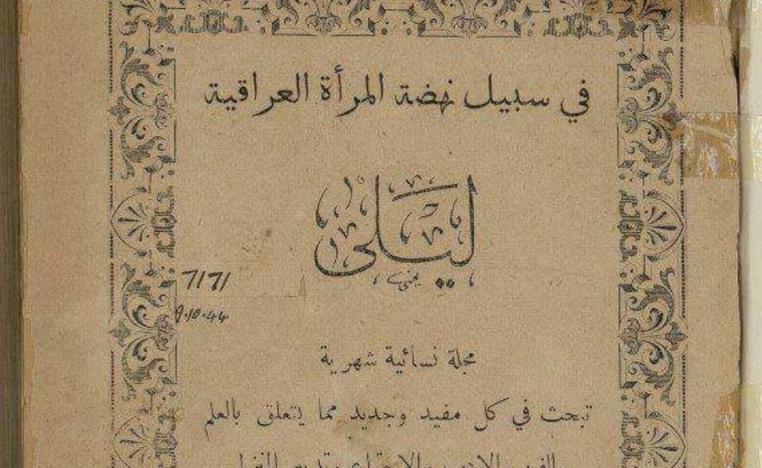 في سبيل نهضة المرأة العراقية
ليلى
يمنى
7171
9.10.44
مجلة نسائية شهرية
تبحث في كل مفيد وجديد مما يتعلق بالعلم